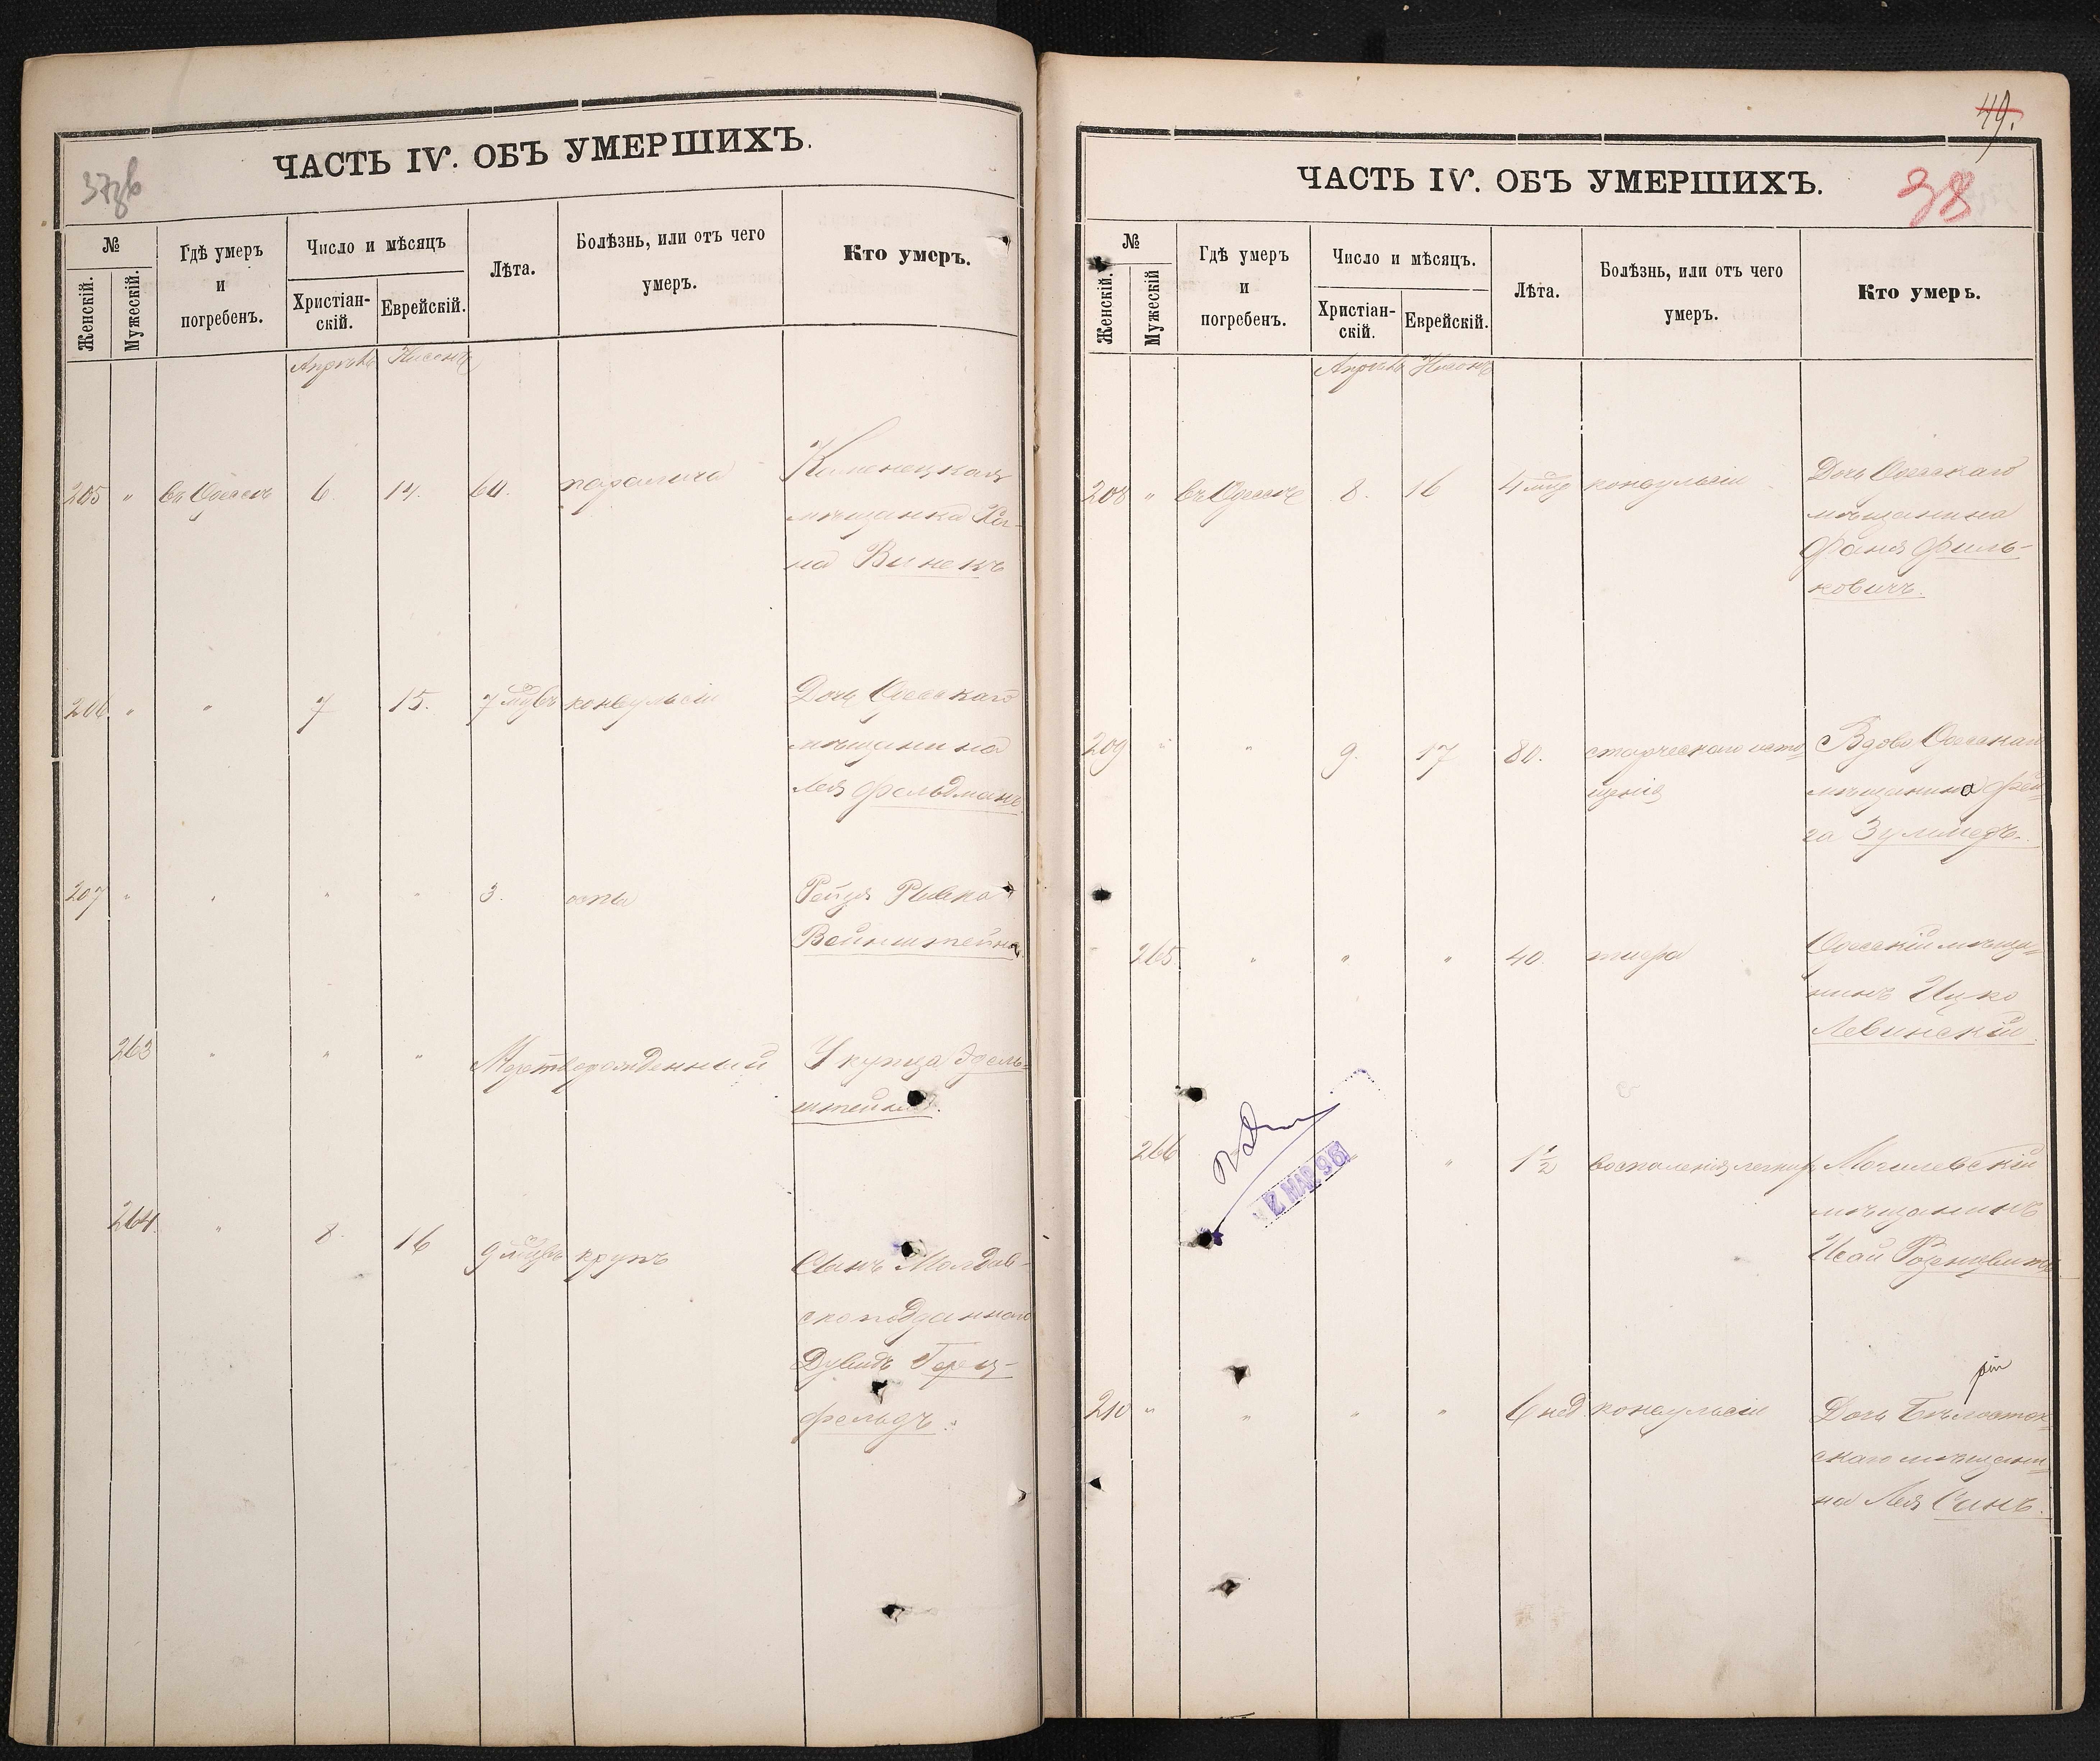 ЧАСТЬ IV. ОБЪ УМЕРШИХЪ.
37об
№
Женскій.
Мужескій.
Гдѣ умеръ
и
погребенъ.
Число и мѣсяцъ
Христіан-
скій.
Еврейскій.
Лѣта.
Болѣзнь, или отъ чего
умеръ.
Кто умеръ.
Апрѣль Нисонъ
205 " въ Одессѣ 6. 14. 60. паралича Каменецкая
мѣщанка Ха-
на Винекъ
206 " " 7 15. 7 мѣсцвъ конвульсіи Дочь Одесскаго
мѣщанина
Лея Фельдманъ
207 " " " " 3. оспы Рейзя Рывка
Вейнштейнъ
263 " " " Мертворожденный У купца Эдель-
штейна.
264 " 8. 16 9 мѣсцвъ крупъ Сынъ Молдав-
скоподданнаго
Дувидъ Герц-
фельдъ.
49.
ЧАСТЬ IV. ОБЪ УМЕРШИХЪ.
38
№
Женскій.
Мужескій
Гдѣ умеръ
и
погребенъ.
Число и мѣсяцъ.
Христіан-
скій.
Еврейскій.
Лѣта.
Болѣзнь, или отъ чего
умеръ.
Кто умеръ.
Апрѣль Нисонъ
208 " въ Одессѣ 8. 16 4 мѣс конвульсіи Дочь Одесскаго
мѣщанина
Фаня Филь-
ковичъ.
209 " " 9. 17 80. старческаго исто-
щенія
Вдова Одесскаго
мѣщанина Фей-
га
265 " " " 40. тифа Одесскій мѣща-
нинъ Ицко
Левинскій
266 " 1½ воспаленія легкихъ Могилевскій
мѣщанинъ
Исай Розенцвитъ
2 МАР 96
210 " " " " 6 нед. конвульсіи Дочь Бѣлосток-
скаго мѣщани-
на Лея Синъ.